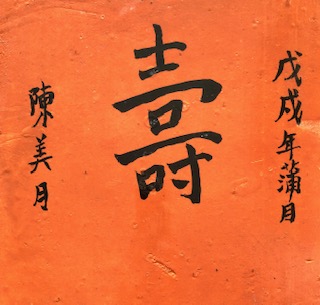 戊戌年蒲月
壽
陳美月